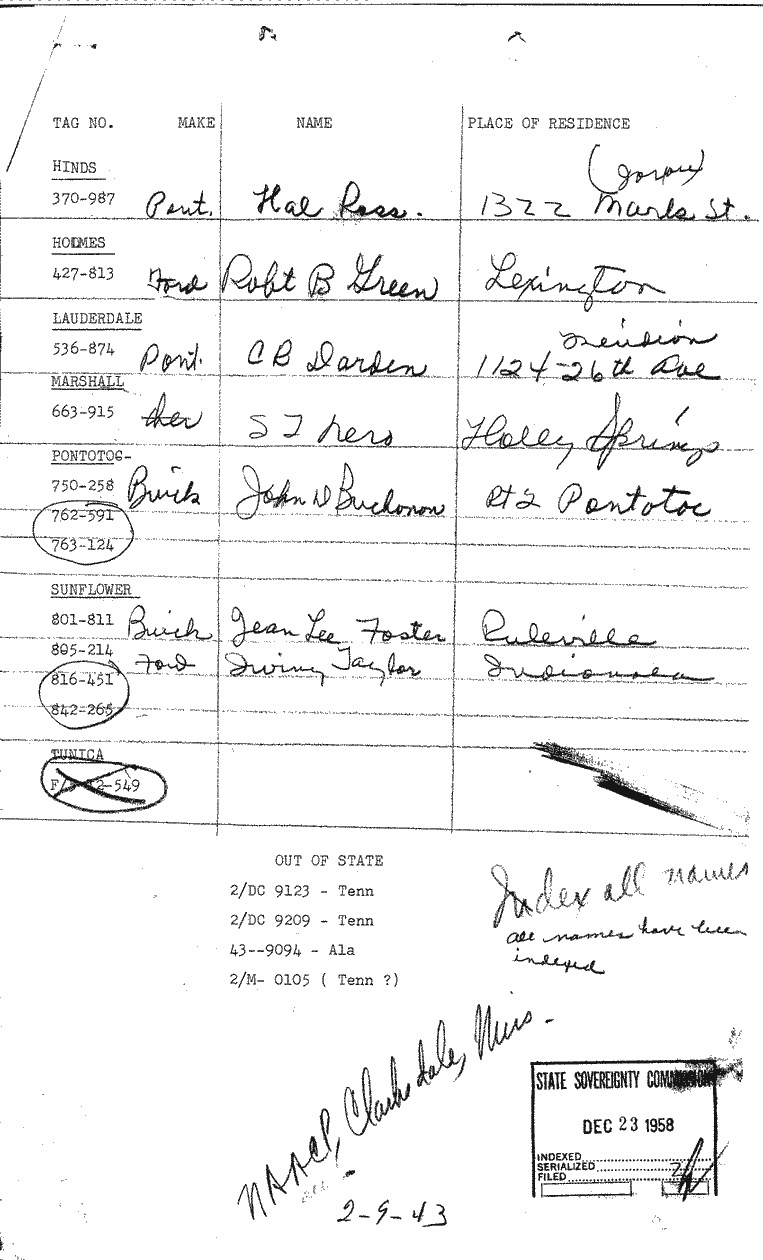 TAG NO. MAKE NAME PLACE OF RESIDENCE
HINDS
370-987 Pont. Hal Ross. 1322 Marks St.
HOLMES
427-813 Ford Robt B Green Lexington
LAUDERDALE
536-874 Pont. C R Darden 1124-26th Ave
MARSHALL
663-915 S T Nero Holly Springs
PONTOTOC-
750-258 Buick John D Buchonon Rt 2 Pontotoc
762-591
763-124
SUNFLOWER
801-811 Buick Jean Lee Foster Ruleville
805-214 Ford Irving Taylor Indianola
816-451
842-265
TUNICA
-549
OUT OF STATE
2/DC 9123 - Tenn
2/DC 9209 - Tenn
43--9094 - Ala
2/M- 0105 ( Tenn ?)
Index all names
all names have been
indexed
NAACP, Clarksdale, Miss.
2-9-43
STATE SOVEREIGNTY COMMISSION
DEC 23 1958
INDEXED
SERIALIZED
FILED